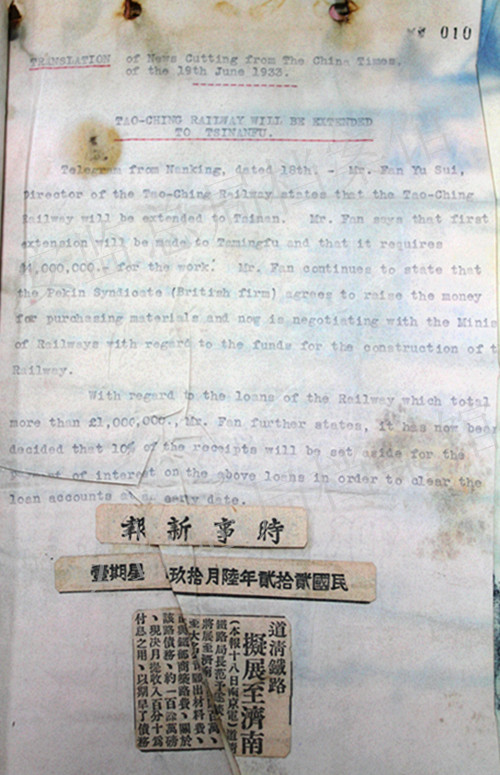 010
TRANSLATION of News Cutting from The China Times.
of the 19th June 1933.
TAO-CHING RAILWAY WILL BE EXTENDED
TO TSINANFU.
Telegram from Nanking, dated 18th. - Mr. Fan Yu Sui,
Director of the Tao-Ching Railway states that the Tao-Ching
Railway will be extended to Tainan. Mr. Fan says that first
extension will be made to Tamingfu and that it requires
$4,000,000.- for the work. Mr. Fan continues to state that
the Pekin Syndicate (British firm) agrees to raise the money
for purchasing materials and now is negotiating with the Minis
of Railways with regard to the funds for the construction of t
Railway.
With regard to the loans of the Railway which total
more than £1,000,000., Mr. Fan further states, it has now been
decided that 10% of the receipts will be set aside for the
of interest on the above loans in order to clear the
loan accounts at early date.
時事新報
民國貳拾貳年陸月拾玖 星期壹
道清鐵路
擬展至濟南
(本報十八日南京電)道清
鐵路局長范予遂
將展至濟南
出材料費、
商築路費、關於
該路債務、約一百餘萬磅
、現決月提收入百分十為
付息之用、以期早了債務